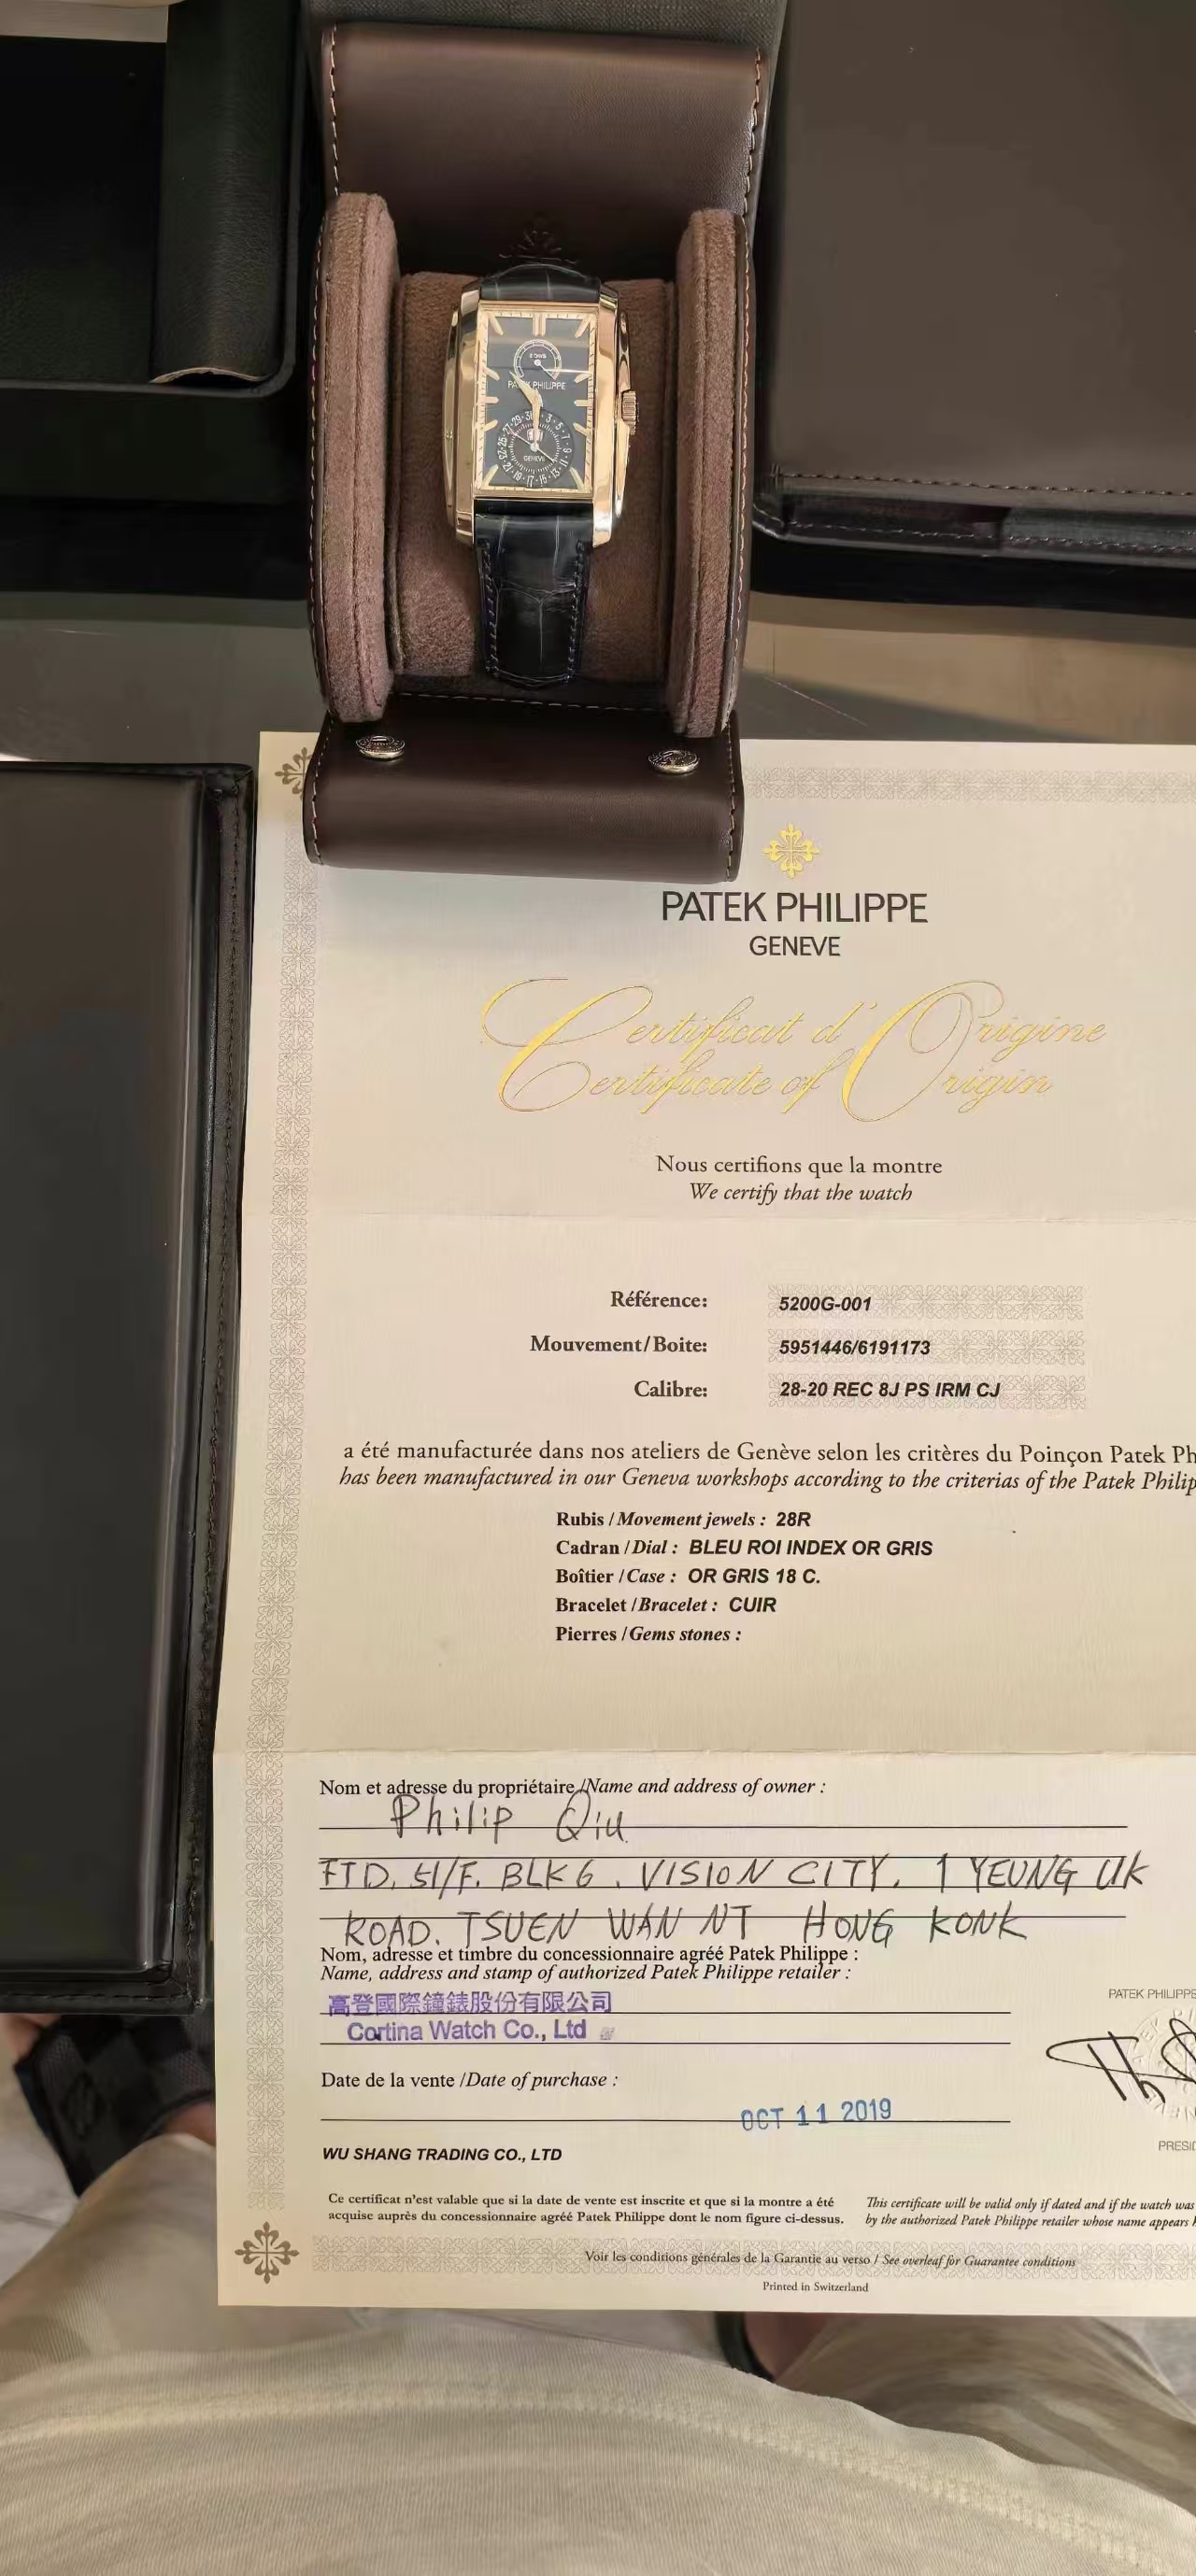 8 DAYS
PATEK PHILIPPE
GENEVE
PATEK PHILIPPE
GENEVE
Certificat d'Origine
Certificate of Origin
Nous certifions que la montre
We certify that the watch
Référence: 5200G-001
Mouvement/Boite: 5951446/6191173
Calibre: 28-20 REC 8J PS IRM CJ
a été manufacturée dans nos ateliers de Genève selon les critères du Poinçon Patek Ph
has been manufactured in our Geneva workshops according to the criterias of the Patek Philip
Rubis / Movement jewels : 28R
Cadran / Dial : BLEU ROI INDEX OR GRIS
Boîtier / Case : OR GRIS 18 C.
Bracelet / Bracelet : CUIR
Pierres / Gems stones :
Nom et adresse du propriétaire / Name and address of owner :
Philip Qiu
FTD, 51/F. BLK 6. VISION CITY. 1 YEUNG UK
ROAD. TSUEN WAN NT HONG KONK
Nom, adresse et timbre du concessionnaire agréé Patek Philippe :
Name, address and stamp of authorized Patek Philippe retailer :
高登國際鐘錶股份有限公司
Cortina Watch Co., Ltd
PATEK PHILIPPE
Date de la vente / Date of purchase :
OCT 11 2019
PRESID
WU SHANG TRADING CO., LTD
Ce certificat n'est valable que si la date de vente est inscrite et que si la montre a été
acquise auprès du concessionnaire agréé Patek Philippe dont le nom figure ci-dessus.
This certificate will be valid only if dated and if the watch was
by the authorized Patek Philippe retailer whose name appears
Voir les conditions générales de la Garantie au verso / See overleaf for Guarantee conditions
Printed in Switzerland